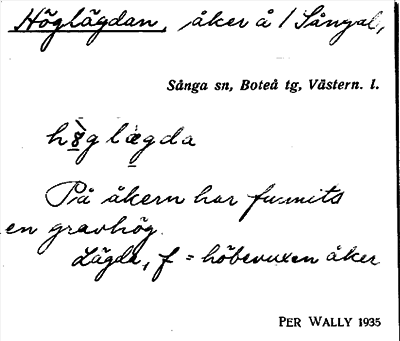 Höglägdan, åker å 1 Sånga 2,
Sånga sn, Boteå tg, Västern. l.
På åkern har funnits
en gravhög.
Lägda, f = höbevuxen åker
PER WALLY 1935